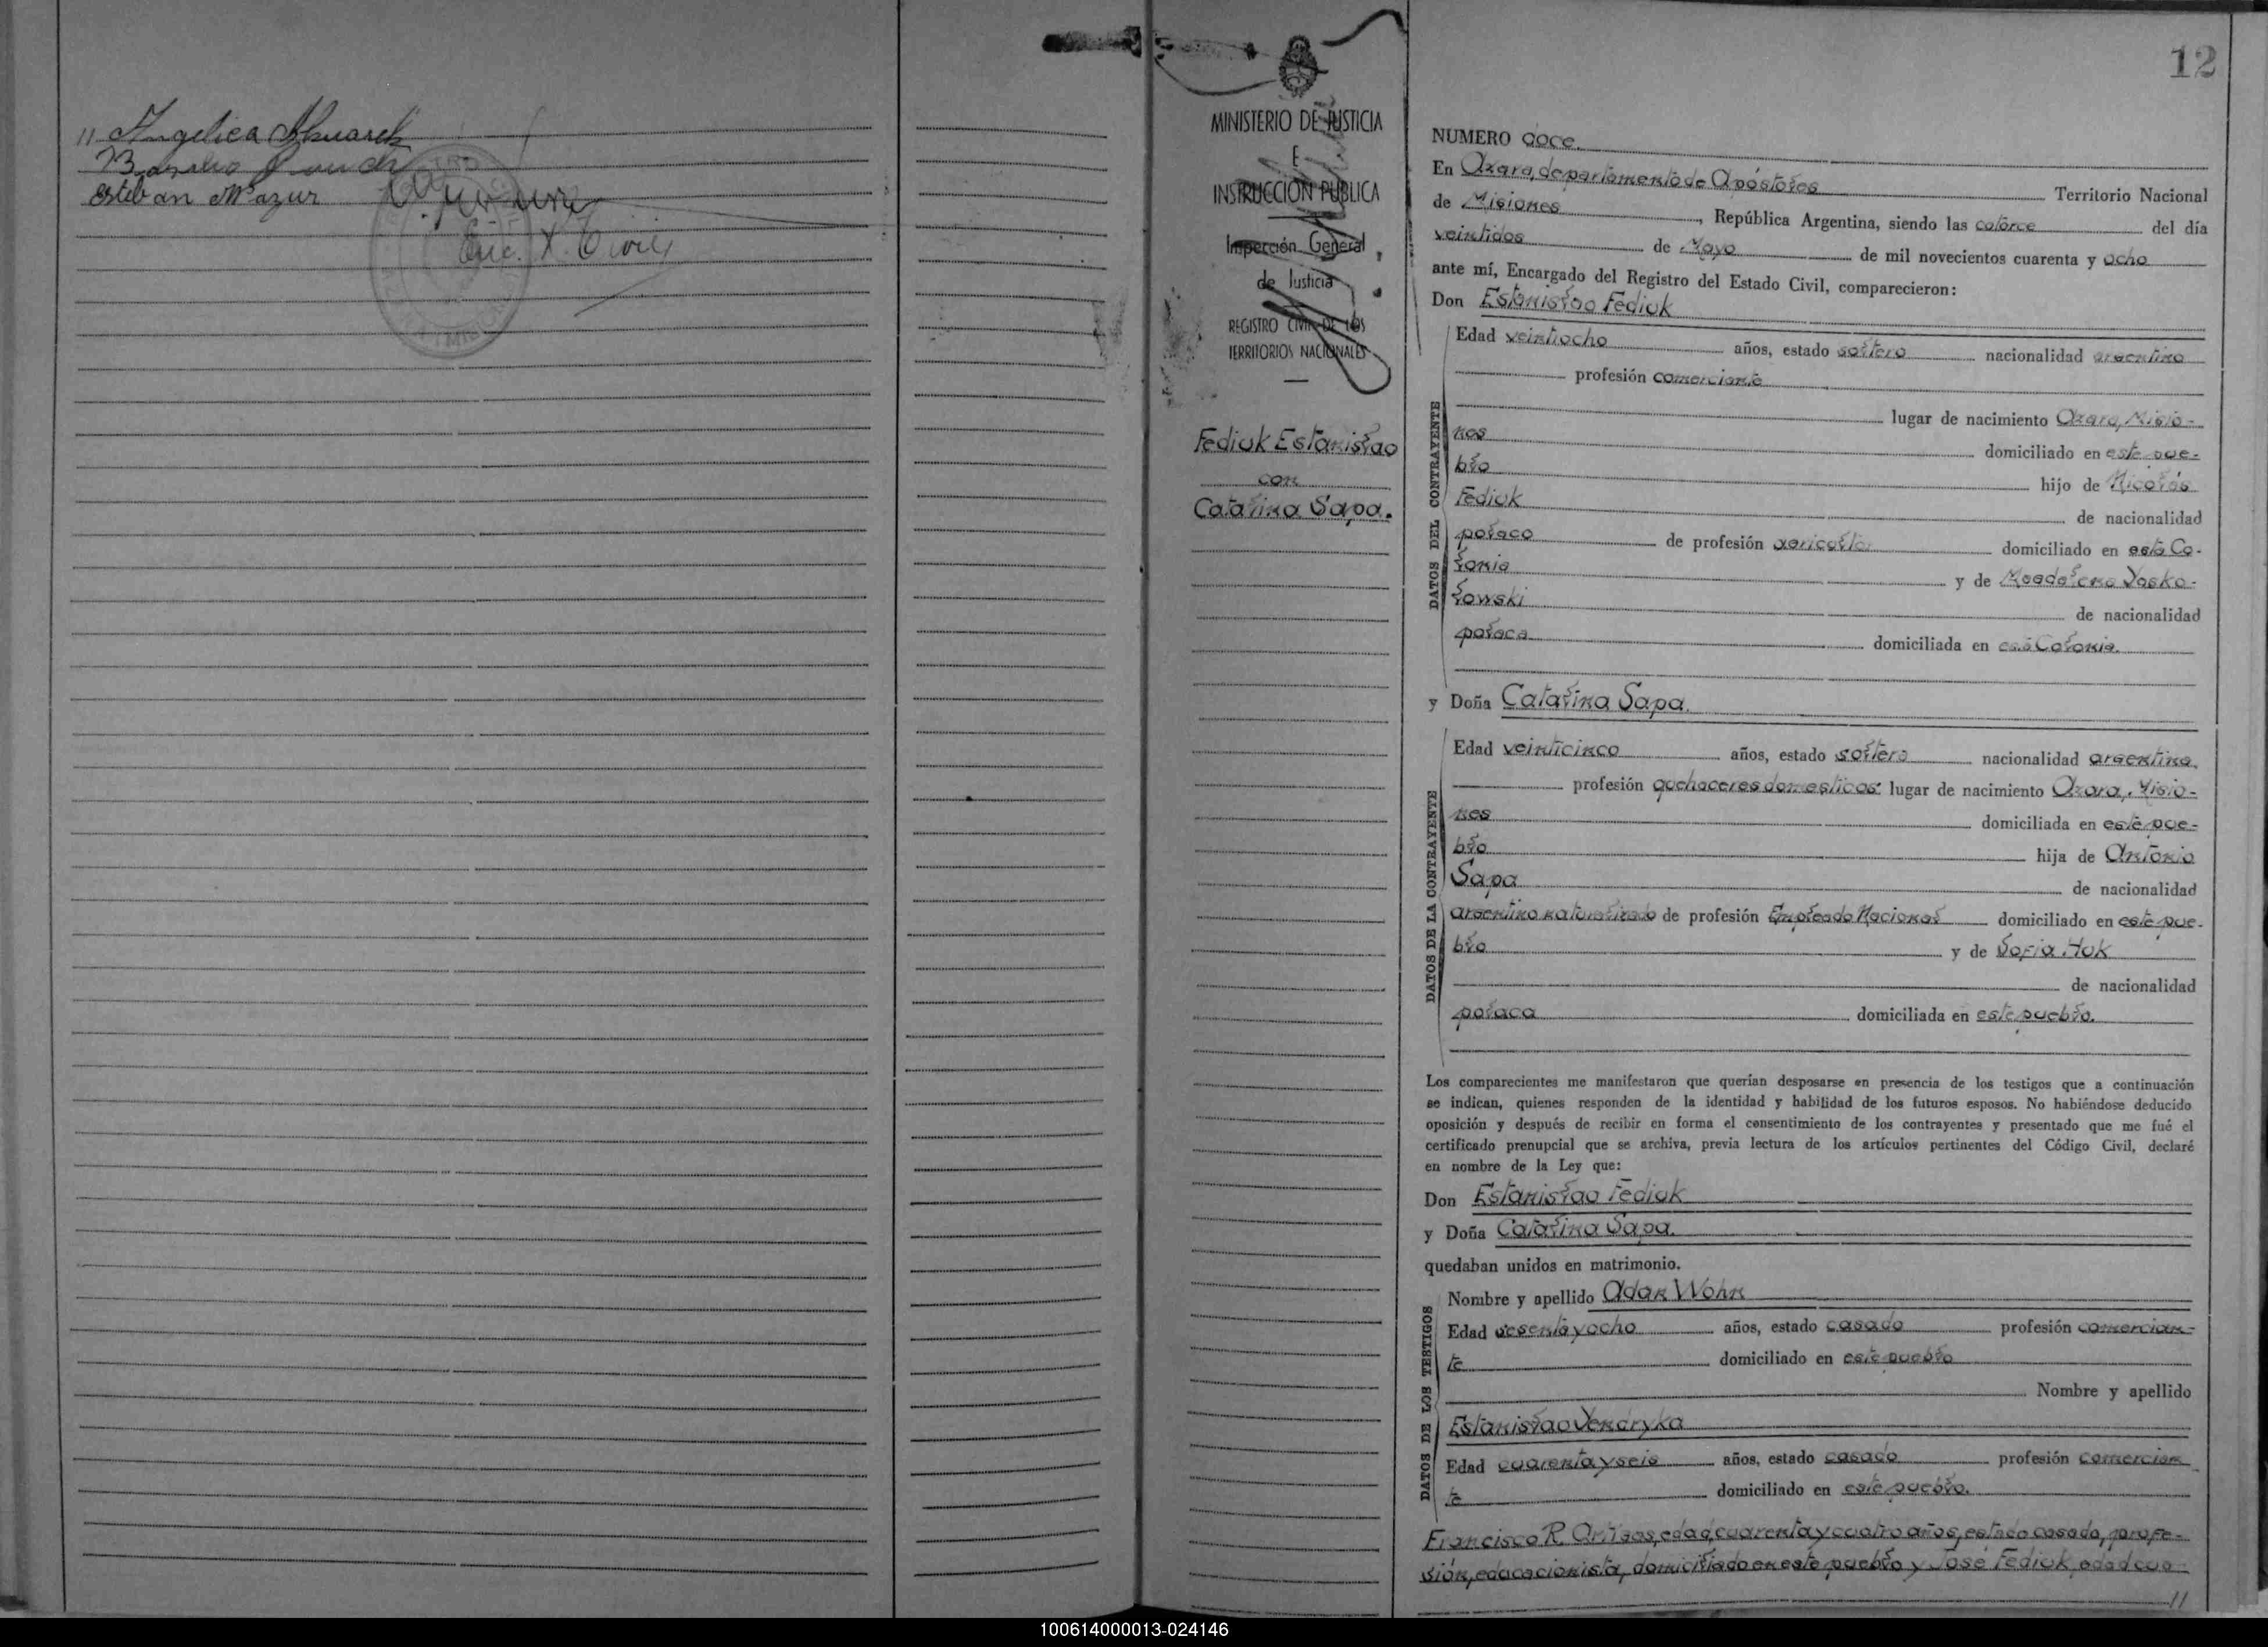 11 Angelica
Esteban Mazur
Enc. R. Civil
12
MINISTERIO DE JUSTICIA
E
INSTRUCCIÓN PUBLICA
Inspección General
de Justicia
REGISTRO CIVIL DE LOS
TERRITORIOS NACIONALES
Fediuk Estanislao
con
Catalina Sapa.
NUMERO doce.
En Azara, departamento de Apóstoles Territorio Nacional
de Misiones, República Argentina, siendo las catorce del día
veintidos de Mayo de mil novecientos cuarenta y ocho
ante mí, Encargado del Registro del Estado Civil, comparecieron:
Don Estanislao Fediuk
DATOS DEL CONTRAYENTE
Edad veintiocho años, estado soltero nacionalidad argentino
profesión comerciante
lugar de nacimiento Azara, Misio-
nes domiciliado en este pue-
blo hijo de Nicolás
Fediuk de nacionalidad
polaco de profesión agricultor domiciliado en esta Co-
lonia y de Magdalena Yasko-
lowski de nacionalidad
polaca domiciliada en esta Colonia.
y Doña Catalina Sapa.
DATOS DE LA CONTRAYENTE
Edad veinticinco años, estado soltera nacionalidad argentina,
profesión quehaceres domesticos lugar de nacimiento Azara, Misio-
nes domiciliada en este pue-
blo hija de Antonio
Sapa de nacionalidad
argentino naturalizado de profesión Empleado Nacional domiciliado en este pue-
blo y de Sofia Huk
de nacionalidad
polaca domiciliada en este pueblo.
Los comparecientes me manifestaron que querían desposarse en presencia de los testigos que a continuación
se indican, quienes responden de la identidad y habilidad de los futuros esposos. No habiéndose deducido
oposición y después de recibir en forma el consentimiento de los contrayentes y presentado que me fué el
certificado prenupcial que se archiva, previa lectura de los artículos pertinentes del Código Civil, declaré
en nombre de la Ley que:
Don Estanislao Fediuk
y Doña Catalina Sapa.
quedaban unidos en matrimonio.
DATOS DE LOS TESTIGOS
Nombre y apellido Adan Wohn
Edad sesenta y ocho años, estado casado profesión comercian-
te domiciliado en este pueblo
Nombre y apellido
Estanislao Yendryka
Edad cuarenta y seis años, estado casado profesión comercian
te domiciliado en este pueblo.
Francisco R. Artigas, edad, cuarenta y cuatro años, estado casado, profe-
sión, educacionista, domiciliado en este pueblo y José Fediuk, edad cua-
11
100614000013-024146